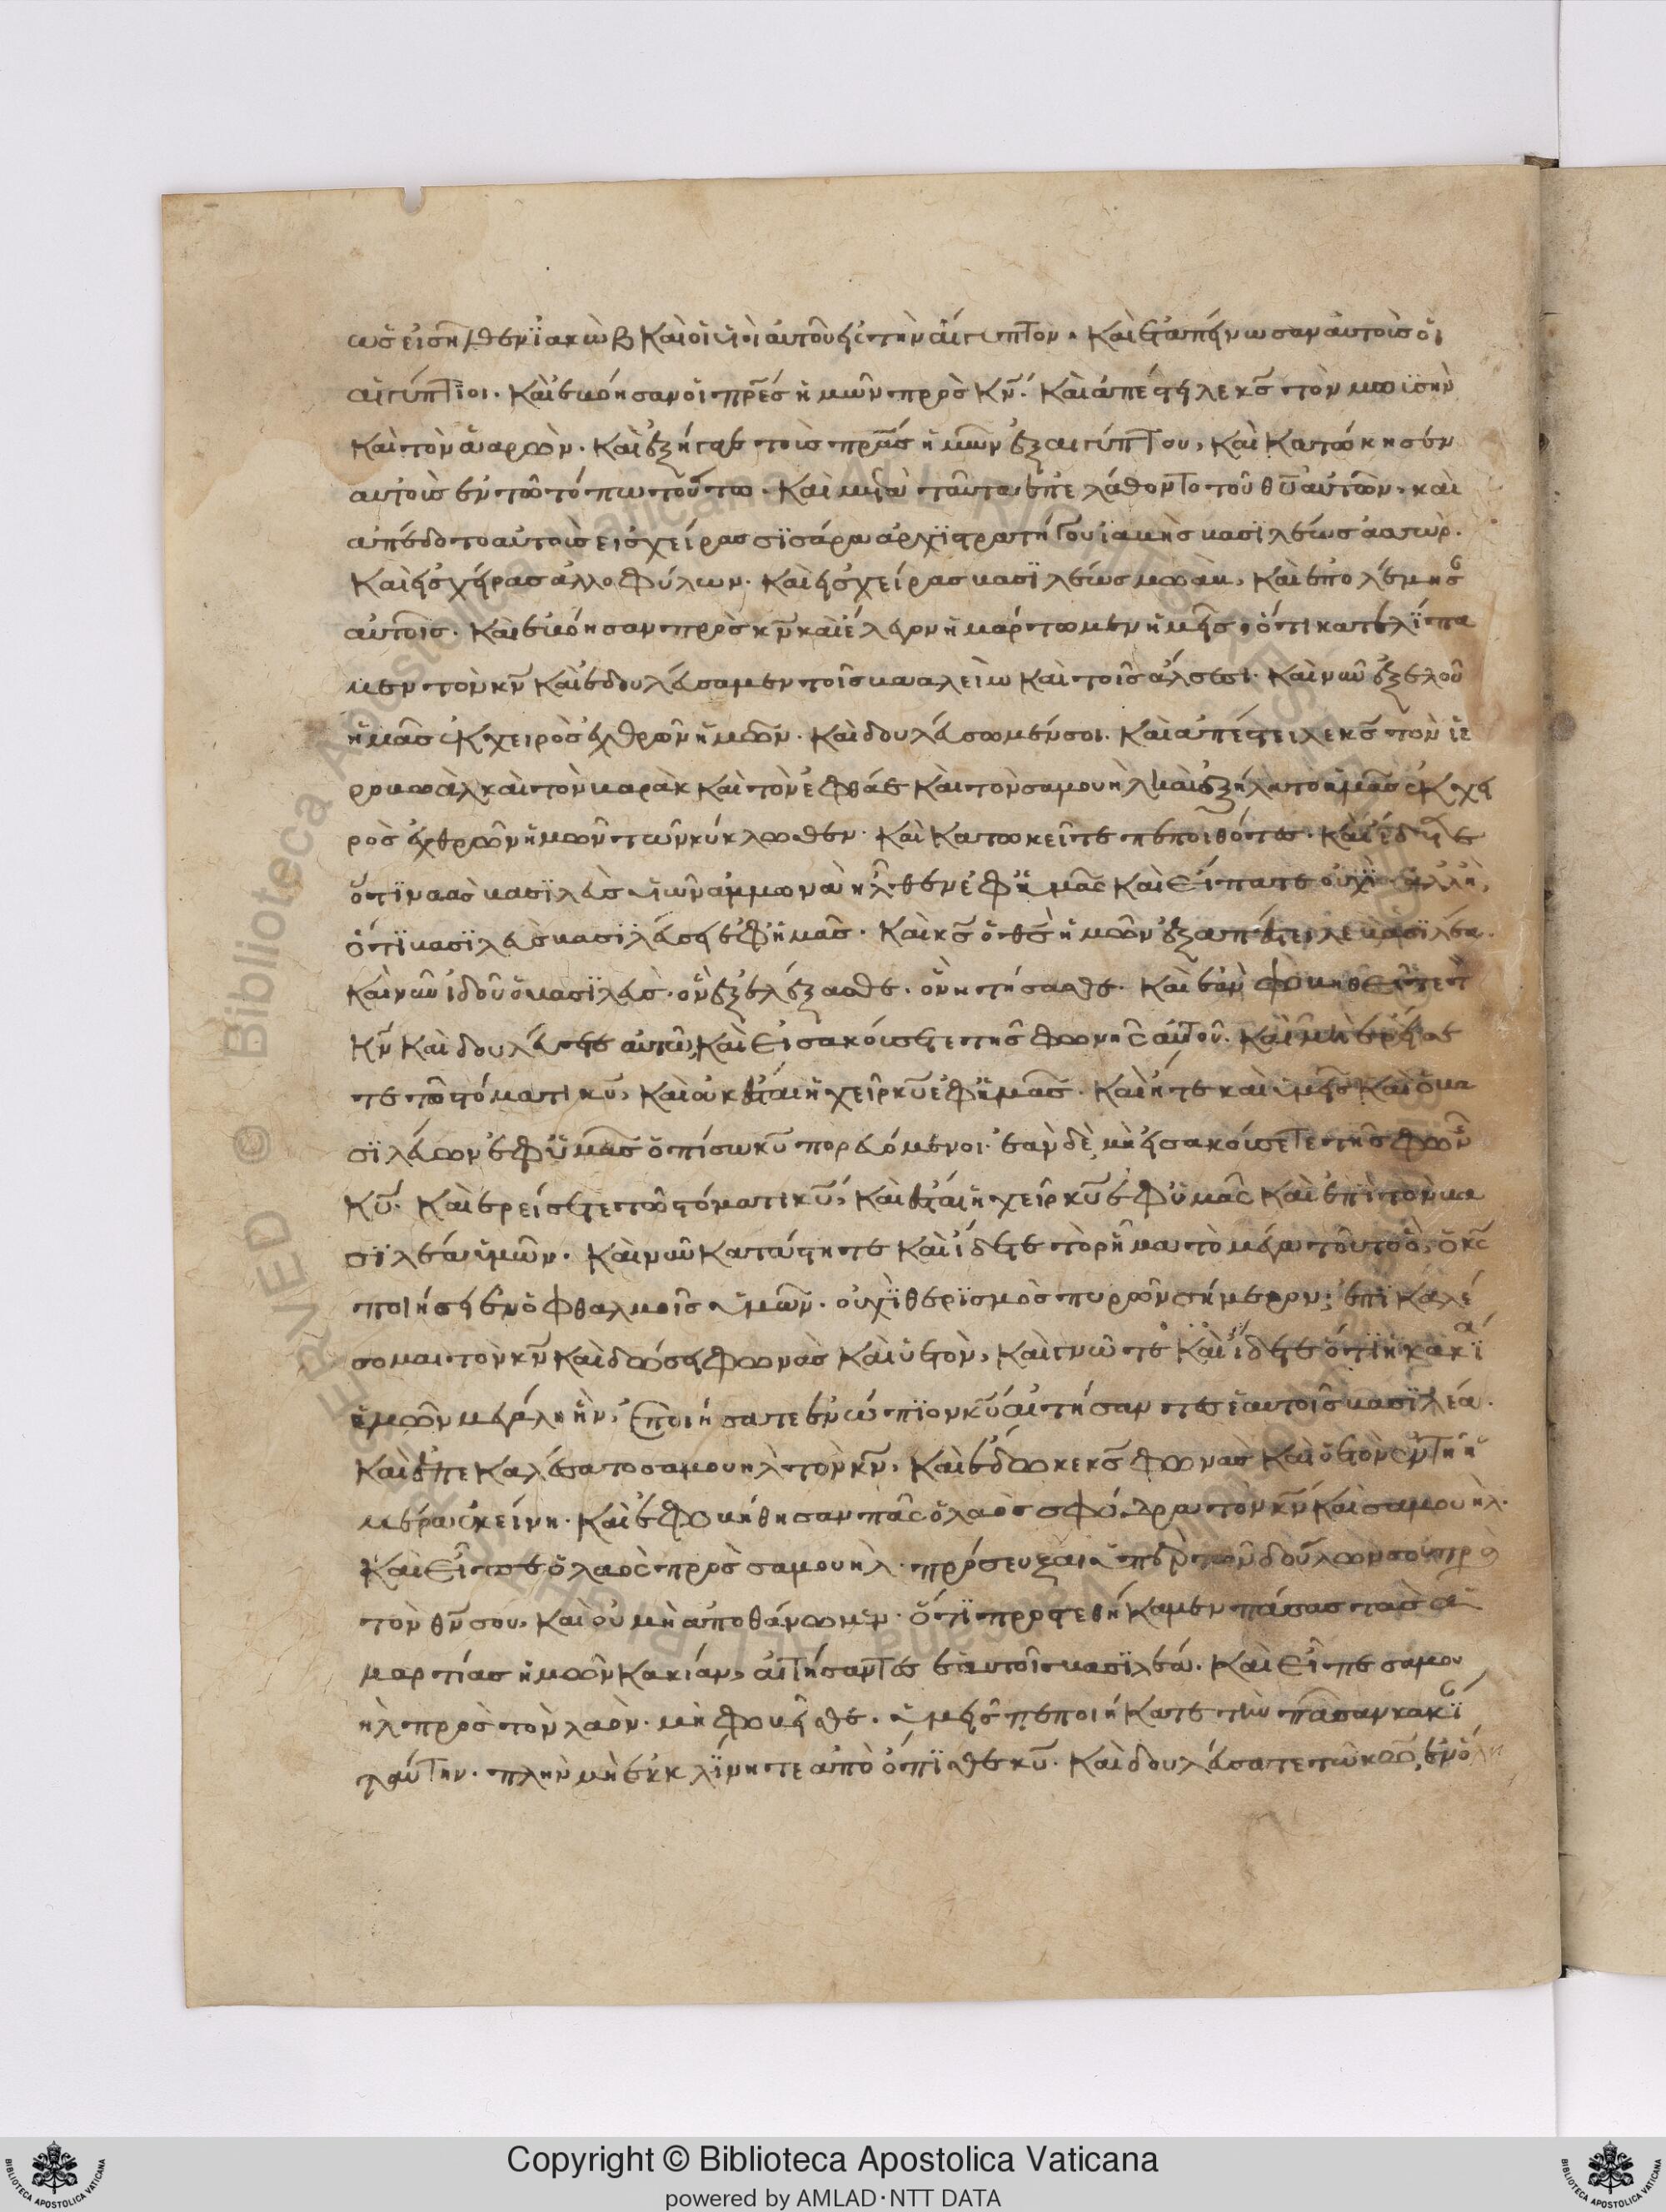 ὡς εἰσῆλθεν ϊακὼβ καὶ οἱ υἱοὶ αὐτοῦ εἰς τὴν αἴγυπτον. καὶ εταπείνωσαν αὐτοὺς οἱ
αἰγύπτϊοι. καὶ ἐβόησαν οἱ πρ̅ες ἡμῶν πρὸς κν̅. καὶ ἀπέστειλε κς̅ τὸν μωϋσῆν
καὶ τὸν ἀαρων. καὶ ἐξήγαγε τοὺς πρ̅ας ἡμῶν ἐξ αιγύπτου, καὶ κατώκησεν
αὐτοὺς ἐν τῶ τόπω τούτω. καὶ μετὰ ταῦτα ἐπελάθοντο τοῦ θυ̅ αὐτῶν. καὶ
ἀπέδοτο αὐτοὺς εἰς χείρας σϊσάρα ἀρχϊστρατήγου ϊαβὴς βασϊλέως ἀσσωρ.
καὶ εἰς χείρας ἀλλοφύλων. καὶ εἰς χείρας βασϊλέως μωαβ, καὶ ἐπολέμησε
αὐτοῖς. καὶ ἐβόησαν πρὸς κν̅ καὶ ἔλεγον ἡμάρτωμεν ἡμεῖς, ὅτι κατελϊπα
μεν τὸν κν̅ καὶ ἐδουλεύσαμεν τοῖς βααλεὶμ καὶ τοῖς ἄλσεσι. καὶ νῦν ἐξελοῦ
ἡμᾶς ἐκ χειρὸς ἐχθρῶν ἡμῶν. καὶ δουλεύσωμέν σοι. καὶ ἀπέστειλε κς̅ τὸν ἱε
ροβοὰλ καὶ τὸν βαρὰκ καὶ τὸν ἐφθάε καὶ τὸν σαμουὴλ καὶ ἐξήλατο ἡμᾶς ἐκ χει
ρὸς ἐχθρῶν ἡμῶν τῶν κύκλωθεν. καὶ κατωκεῖτε πεποιθότες. καὶ ἴδετε
ὅτϊ ναὰς βασϊλεὺς υἱῶν ἀμμὼν ἦλθεν ἐφ ἡμᾶς καὶ εἴπατε οὐχὶ ἀλλὴ,
ὅτϊ βασϊλεὺς βασϊλεύσει ἐφ ἡμᾶς. καὶ κς̅ ὁ θς̅ ἡμῶν ἐξαπέστειλε βασϊλέα.
καὶ νῦν ἰδοὺ ὁ βασϊλεὺς. ὃν ἐξελέξασθε. ὃν ἠτήσασθε. καὶ ἐὰν φοβηθεῖτε τ
κν̅ καὶ δουλεύσητε αὐτῶ, καὶ εἰσακούσετε τῆς φωνῆς αὐτοῦ. καὶ μὴ ἐρείσε
τε τῶ στόματι κυ̅, καὶ οὐκ ἔσται ἡ χεὶρ κυ̅ ἐφ ἡμᾶς. καὶ ἦτε καὶ ὑμεῖς καὶ ὁ βα
σϊλεύων ἐφ ὑμᾶς ὀπίσω κυ̅ πορευόμενοι. ἐὰν δὲ μὴ εἰσακούσετε τῆς φων
κυ̅. καὶ ἐρείσετε τῶ στόματι κυ̅, καὶ ἔσται ἡ χεὶρ κυ̅ ἐφ ὑμᾶς καὶ ἐπὶ τὸν βα
σϊλέα ὑμῶν. καὶ νῦν κατάστητε καὶ ἴδετε τὸ ρῆμα τὸ μέγα τοῦτο ὃ, ὁ κς̅
ποιήσει ἐν ὀφθαλμοῖς ὑμῶν. οὐχὶ θερϊσμὸς πυρῶν σήμερον; ἐπϊκαλέ
σομαι τὸν κν̅ καὶ δώσει φωνὰς καὶ ὑετὸν, καὶ γνῶτε καὶ ἴδετε ὅτϊ ἡ κακϊα
ὑμῶν μεγάλη ἣν, ἐποιήσατε ἐνώπϊον κυ̅ αἰτήσαντες ἑαυτοῖς βασϊλέα.
καὶ ἐπεκαλέσατο σαμουὴλ τὸν κν̅, καὶ ἔδωκε κς̅ φωνὰς καὶ ὑετὸν ἐν τῆ ἡ
μέρα ἐκείνη. καὶ ἐφοβήθησαν πᾶς ὁ λαὸς σφόδρα τὸν κν̅ καὶ σαμουὴλ.
καὶ εἶπε ὁ λαὸς πρὸς σαμουὴλ. πρόσευξαι ὑπὲρ τῶν δούλων σου πρὸ
τὸν θν̅ σου, καὶ οὐ μὴ ἀποθάνωμεν. ὅτϊ προστεθήκαμεν πάσας τὰς ἁ
μαρτίας ἡμῶν κακίαν, αἰτήσαντες ἑαυτοῖς βασϊλέα. καὶ εἶπε σαμου
ὴλ πρὸς τὸν λαόν. μὴ φοβεῖσθε. ὑμεῖς πεποιήκατε τὴν πᾶσαν κακϊ
ταύτην. πλὴν μὴ ἐκκλϊνητε ἀπὸ ὄπϊσθε κυ̅. καὶ δουλεύσατε τῶ κω̅, ἐν ὅλη
Copyright © Biblioteca Apostolica Vaticana
powered by AMLAD·NTT DATA